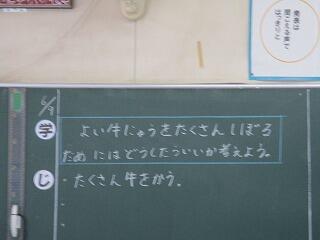 発表は
聞こえる声で
はっきりと
6/9
学
よい牛にゅうをたくさんしぼる
ためにはどうしたらいいか考えよう。
じ
・たくさん牛をかう。